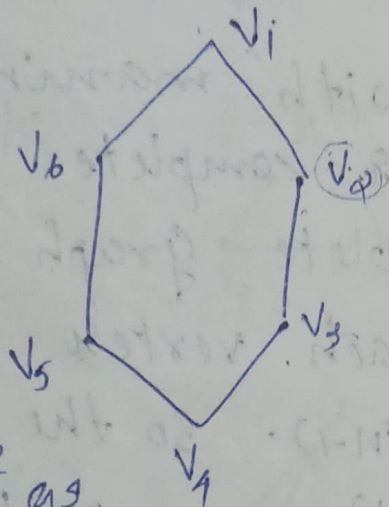 V1
V6
V2
V3
V5
V4
as